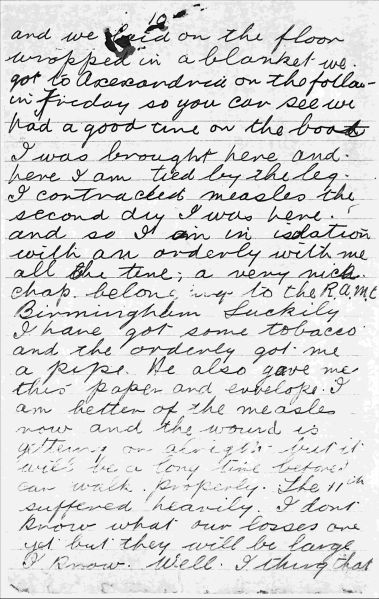 10
and we laid on the floor
wrapped in a blanket we
got to Acexandria on the follow-
in Friday so you can see we
had a good time on the boat
I was brought here and
here I am tied by the leg.
I contracted measles the
second day I was here.
and so I am in isolation
with an orderly with me
all the time; a very nice
chap. belonging to the R.A.M.C
Birmingham Luckily
I have got some tobacco
and the orderly got me
a pipe. He also gave me
this paper and envelope. I
am better of the measles
now and the wound is
getting on alright but it
will be a long time before I
can walk properly. The 11th
suffered heavily. I dont
know what our losses are
yet but they will be large
I know. Well. I thing that